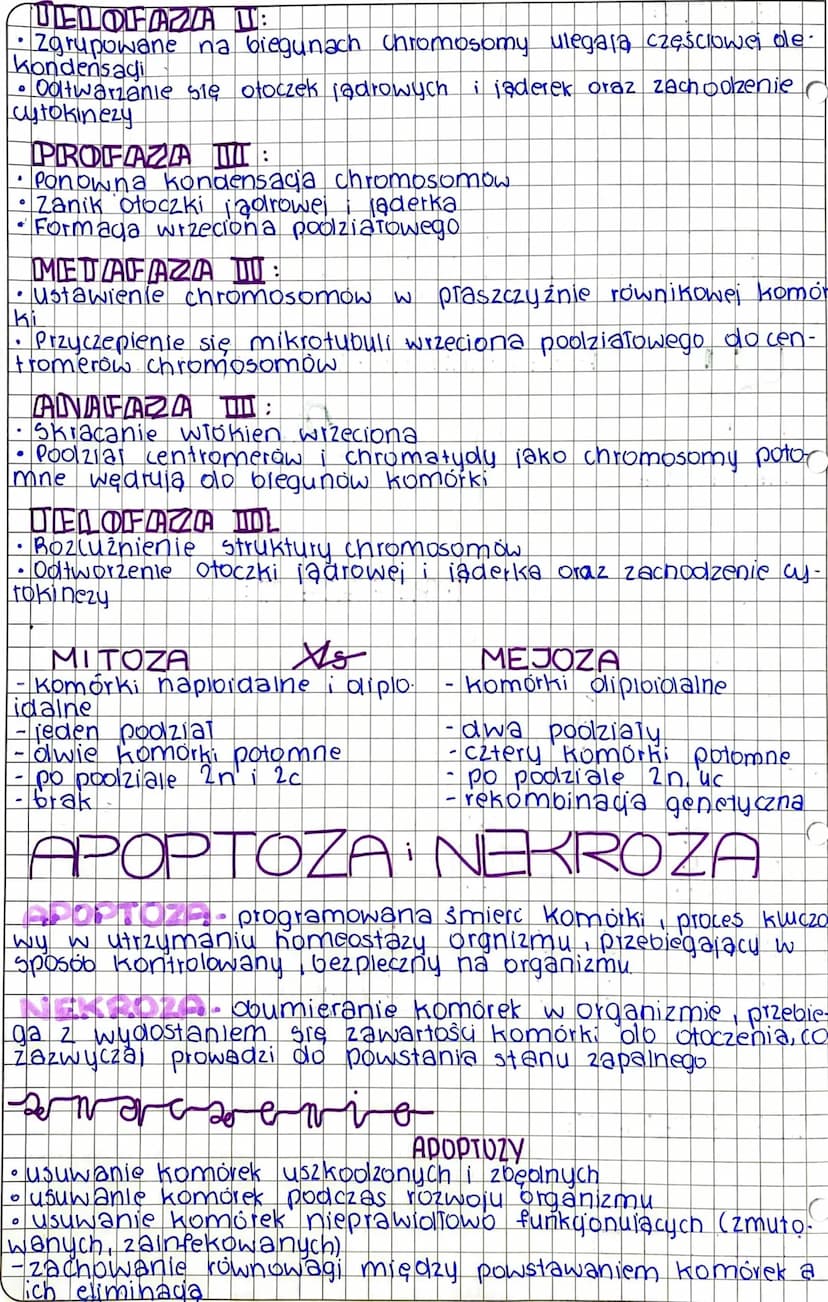 TELOFAZA II:
• Zgrupowane na biegunach chromosomy ulegają częściowej de-
kondensacji
• Odtwarzanie się otoczek jądrowych i jąderek oraz zachodzenie
cytokinezy
PROFAZA III:
• Ponowna kondensacja chromosomów
• Zanik otoczki jądrowej i jąderka
• Formacja wrzeciona podziałowego
METAFAZA III:
• Ustawienie chromosomów w płaszczyźnie równikowej komór
ki
• Przyczepienie się mikrotubuli wrzeciona podziałowego do cen-
tromerów chromosomów
ANAFAZA III:
• Skracanie włókien wrzeciona
• Podział centromerów i chromatydy jako chromosomy poto-
mne wędrują do biegunów komórki
TELOFAZA III
• Rozluźnienie struktury chromosomów
• Odtworzenie otoczki jądrowej i jąderka oraz zachodzenie cy-
tokinezy
MITOZA Vs MEJOZA
- komórki haploidalne i diplo- - komórki diploidalne
idalne
- jeden podział - dwa podziały
- dwie komórki potomne - cztery komórki potomne
- po podziale 2n i 2c - po podziale 2n, 4c
- brak - rekombinacja genetyczna
APOPTOZA i NEKROZA
APOPTOZA - programowana śmierć komórki, proces kluczo
wy w utrzymaniu homeostazy orgnizmu, przebiegający w
sposób kontrolowany, bezpieczny na organizmu
NEKROZA - obumieranie komórek w organizmie, przebie-
ga z wydostaniem się zawartości komórki do otoczenia, co
zazwyczaj prowadzi do powstania stanu zapalnego
znaczenie
APOPTOZY
• usuwanie komórek uszkodzonych i zbędnych
• usuwanie komórek podczas rozwoju organizmu
• usuwanie komórek nieprawidłowo funkcjonujących (zmuto-
wanych, zainfekowanych)
- zachowanie równowagi między powstawaniem komórek a
ich eliminacją